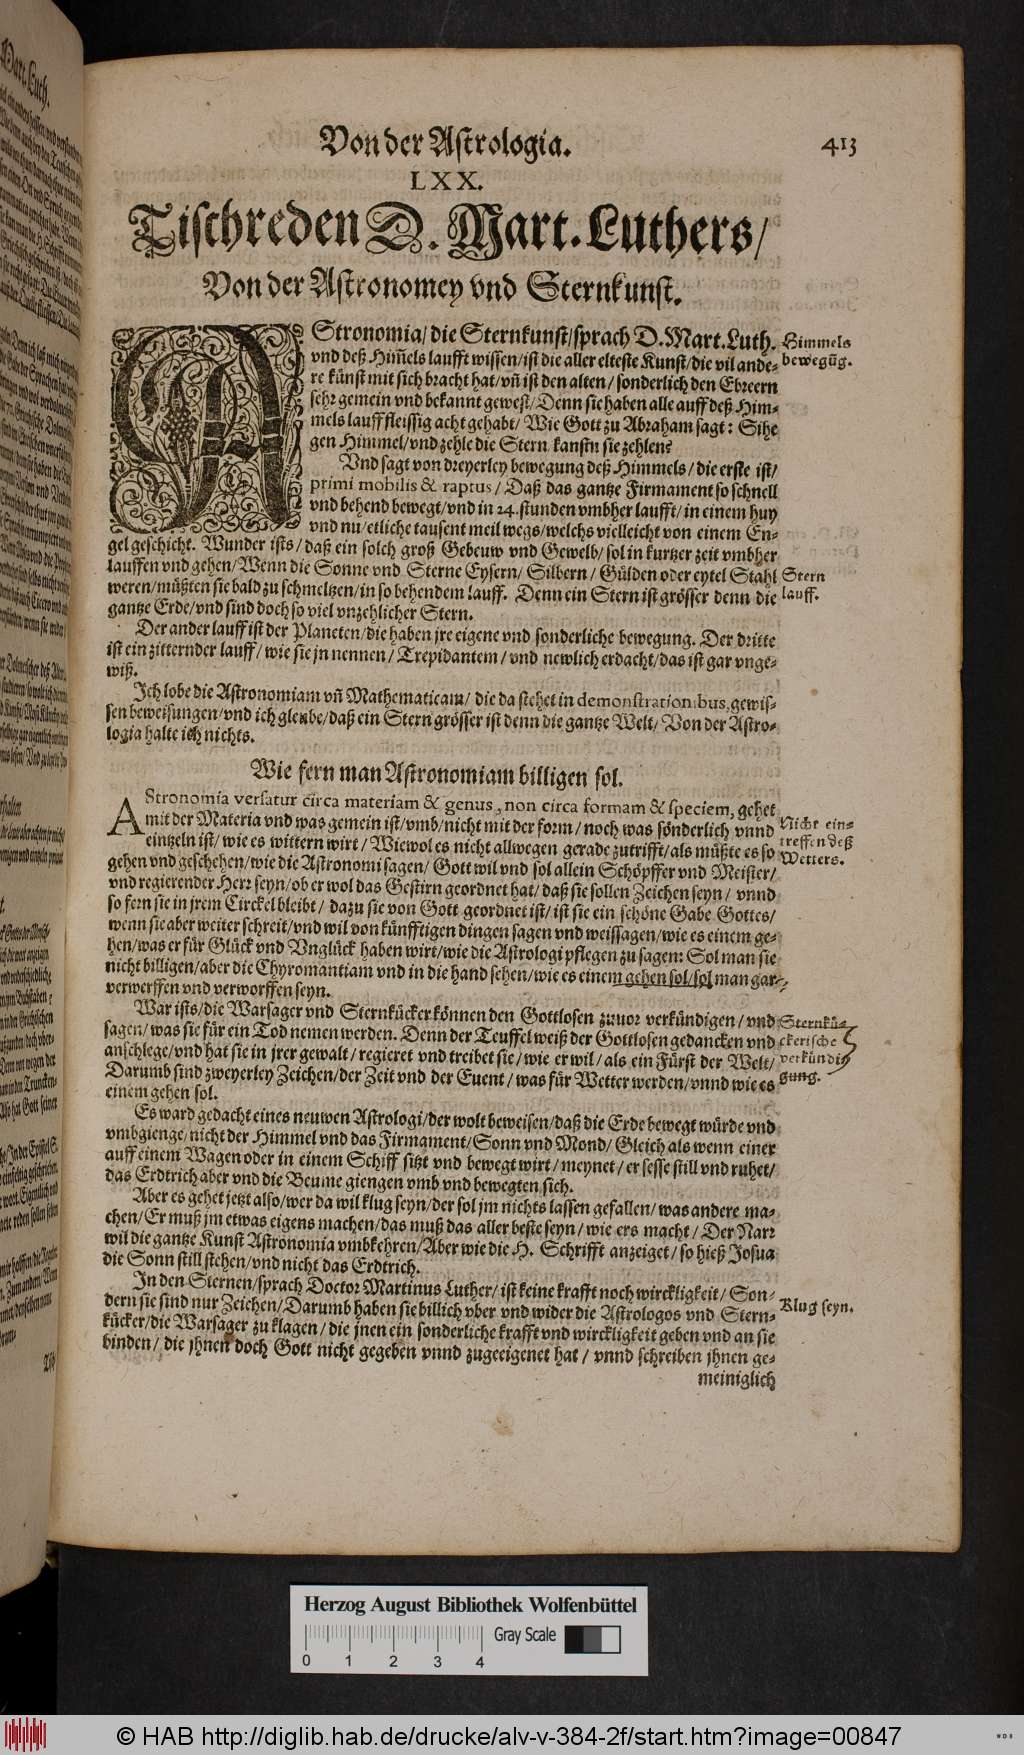 Von der Astrologia.
413
LXX.
Tischreden D. Mart. Luthers/
Von der Astronomey vnd Sternkunst.
AStronomia/ die Sternkunst/ sprach D. Mart. Luth.
vnd deß Him̃els laufft wissen/ ist die aller elteste Kunst/ die vil ande-
re künst mit sich bracht hat/ vñ ist den alten/ sonderlich den Ebreern
sehr gemein vnd bekannt gewest/ Denn sie haben alle auff deß Him-
mels lauff fleissig acht gehabt/ Wie Gott zu Abraham sagt: Sihe
gen Himmel/ vnd zehle die Stern kanstu sie zehlen?
Himmels
bewegũg.
Vnd sagt von dreyerley bewegung deß Himmels/ die erste ist/
primi mobilis & raptus/ Daß das gantze Firmament so schnell
vnd behend bewegt/ vnd in 24. stunden vmbher laufft/ in einem huy
vnd nu/ etliche tausent meil wegs/ welchs vielleicht von einem En-
gel geschicht. Wunder ists/ daß ein solch groß Gebeuw vnd Gewelb/ sol in kurtzer zeit vmbher
lauffen vnd gehen/ Wenn die Sonne vnd Sterne Eysern/ Silbern/ Gülden oder eytel Stahl
weren/ müßten sie bald zu schmeltzen/ in so behendem lauff. Denn ein Stern ist grösser denn die
gantze Erde/ vnd sind doch so viel vnzehlicher Stern.
Stern
lauff.
Der ander lauff ist der Planeten/ die haben jre eigene vnd sonderliche bewegung. Der dritte
ist ein zitternder lauff/ wie sie jn nennen/ Trepidantem/ vnd newlich erdacht/ das ist gar vnge-
wiß.
Ich lobe die Astronomiam vñ Mathematicam/ die da stehet in demonstrationibus, gewis-
sen beweisungen/ vnd ich gleube/ daß ein Stern grösser ist denn die gantze Welt/ Von der Astro-
logia halte ich nichts.
Wie fern man Astronomiam billigen sol.
AStronomia versatur circa materiam & genus, non circa formam & speciem, gehet
mit der Materia vnd was gemein ist/ vmb/ nicht mit der form/ noch was sönderlich vnnd
eintzeln ist/ wie es wittern wirt/ Wiewol es nicht allwegen gerade zutrifft/ als müßte es so
gehen vnd geschehen/ wie die Astronomi sagen/ Gott wil vnd sol allein Schöpffer vnd Meister/
vnd regierender Herr seyn/ ob er wol das Gestirn geordnet hat/ daß sie sollen Zeichen seyn/ vnnd
so fern sie in jrem Circkel bleibt/ dazu sie von Gott geordnet ist/ ist sie ein schöne Gabe Gottes/
wenn sie aber weiter schreit/ vnd wil von künfftigen dingen sagen vnd weissagen/ wie es einem ge-
hen/ was er für Glück vnd Vnglück haben wirt/ wie die Astrologi pflegen zu sagen: Sol man sie
nicht billigen/ aber die Chyromantiam vnd in die hand sehen/ wie es einem gehen sol/ sol man gar
verwerffen vnd verworffen seyn.
Nicht ein-
treffen deß
Wetters.
War ists/ die Warsager vnd Sternkücker können den Gottlosen zuuor verkündigen/ vnd
sagen/ was sie für ein Tod nemen werden. Denn der Teuffel weiß der Gottlosen gedancken vnd
anschlege/ vnd hat sie in jrer gewalt/ regieret vnd treibet sie/ wie er wil/ als ein Fürst der Welt/
Darumb sind zweyerley Zeichen/ der Zeit vnd der Euent/ was für Wetter werden/ vnnd wie es
einem gehen sol.
Sternkü-
ckerische
verkündi
gung.
Es ward gedacht eines neuwen Astrologi/ der wolt beweisen/ daß die Erde bewegt würde vnd
vmbgienge/ nicht der Himmel vnd das Firmament/ Sonn vnd Mond/ Gleich als wenn einer
auff einem Wagen oder in einem Schiff sitzt vnd bewegt wirt/ meynet/ er sesse still vnd ruhet/
das Erdtrich aber vnd die Beume giengen vmb vnd bewegten sich.
Aber es gehet jetzt also/ wer da wil klug seyn/ der sol jm nichts lassen gefallen/ was andere ma-
chen/ Er muß jm etwas eigens machen/ das muß das aller beste seyn/ wie ers macht/ Der Narr
wil die gantze Kunst Astronomia vmbkehren/ Aber wie die H. Schrifft anzeiget/ so hieß Josua
die Sonn still stehen/ vnd nicht das Erdtrich.
In den Sternen/ sprach Doctor Martinus Luther/ ist keine krafft noch wirckligkeit/ Son-
dern sie sind nur Zeichen/ Darumb haben sie billich vber vnd wider die Astrologos vnd Stern-
kücker/ die Warsager zu klagen/ die jnen ein sonderliche krafft vnd wirckligkeit geben vnd an sie
binden/ die jhnen doch Gott nicht gegeben vnnd zugeeigenet hat/ vnnd schreiben jhnen ge-
meiniglich
Klug seyn.
Herzog August Bibliothek Wolfenbüttel
Gray Scale
0 1 2 3 4
© HAB http://diglib.hab.de/drucke/alv-v-384-2f/start.htm?image=00847